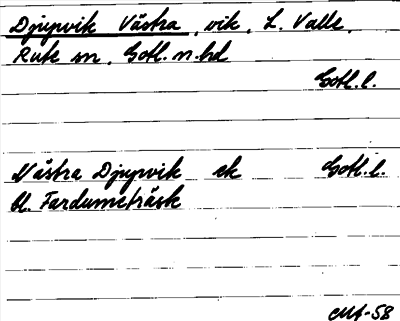 Djupvik Västra, vik, L. Valle,
Rute sn, Gotl. n. hd
Gotl. l.
Västra Djupvik ek Gotl. l.
bl. Fardumeträsk
CMA-58